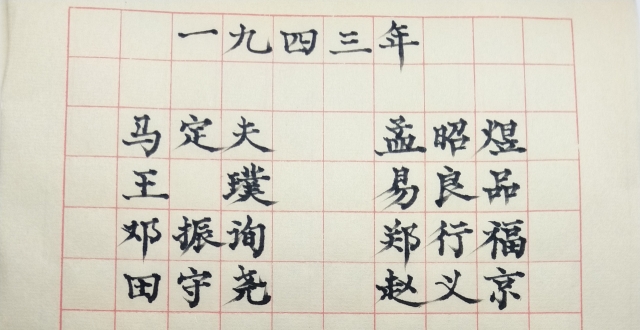 一九四三年
马定夫 孟昭煜
王璞 易良品
邓振询 郑行福
田守尧 赵义京